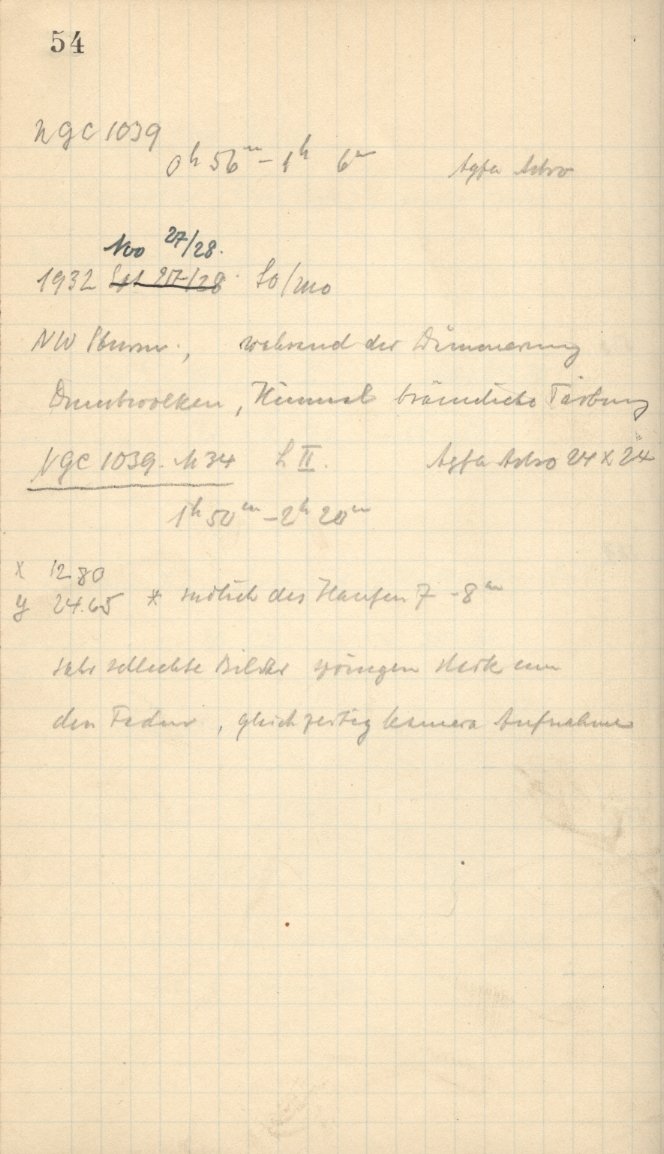 54
NGC 1039
0h 56m - 1h 6m Agfa Astro
Nov 27/28.
1932 27/28 So/Mo
NW Sturm, während der Dämmerung
Dunstwolken, Himmel bräunliche Färbung
NGC 1039. M 34 L II. Agfa Astro 24 x 24
1h 50m - 2h 20m
x 12 80
y 24.65 * südlich des Haufen 7 - 8m
sehr schlechte Bilder springen stark um
den Faden, gleichzeitig Kamera Aufnahme